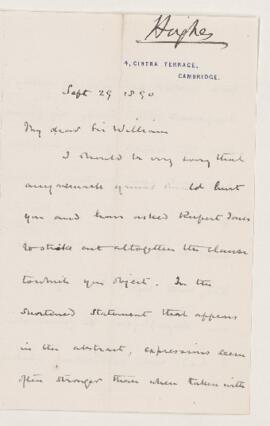 Hughes
4, CINTRA TERRACE,
CAMBRIDGE.
Sept 29 1890
My dear Sir William
I should be very sorry that
any remark hurt
you and have asked Rupert Jones
to strike out altogether the clause
to which you object. In the
shortened statement that appears
in the abstract, expressions seem
often stronger than when taken with